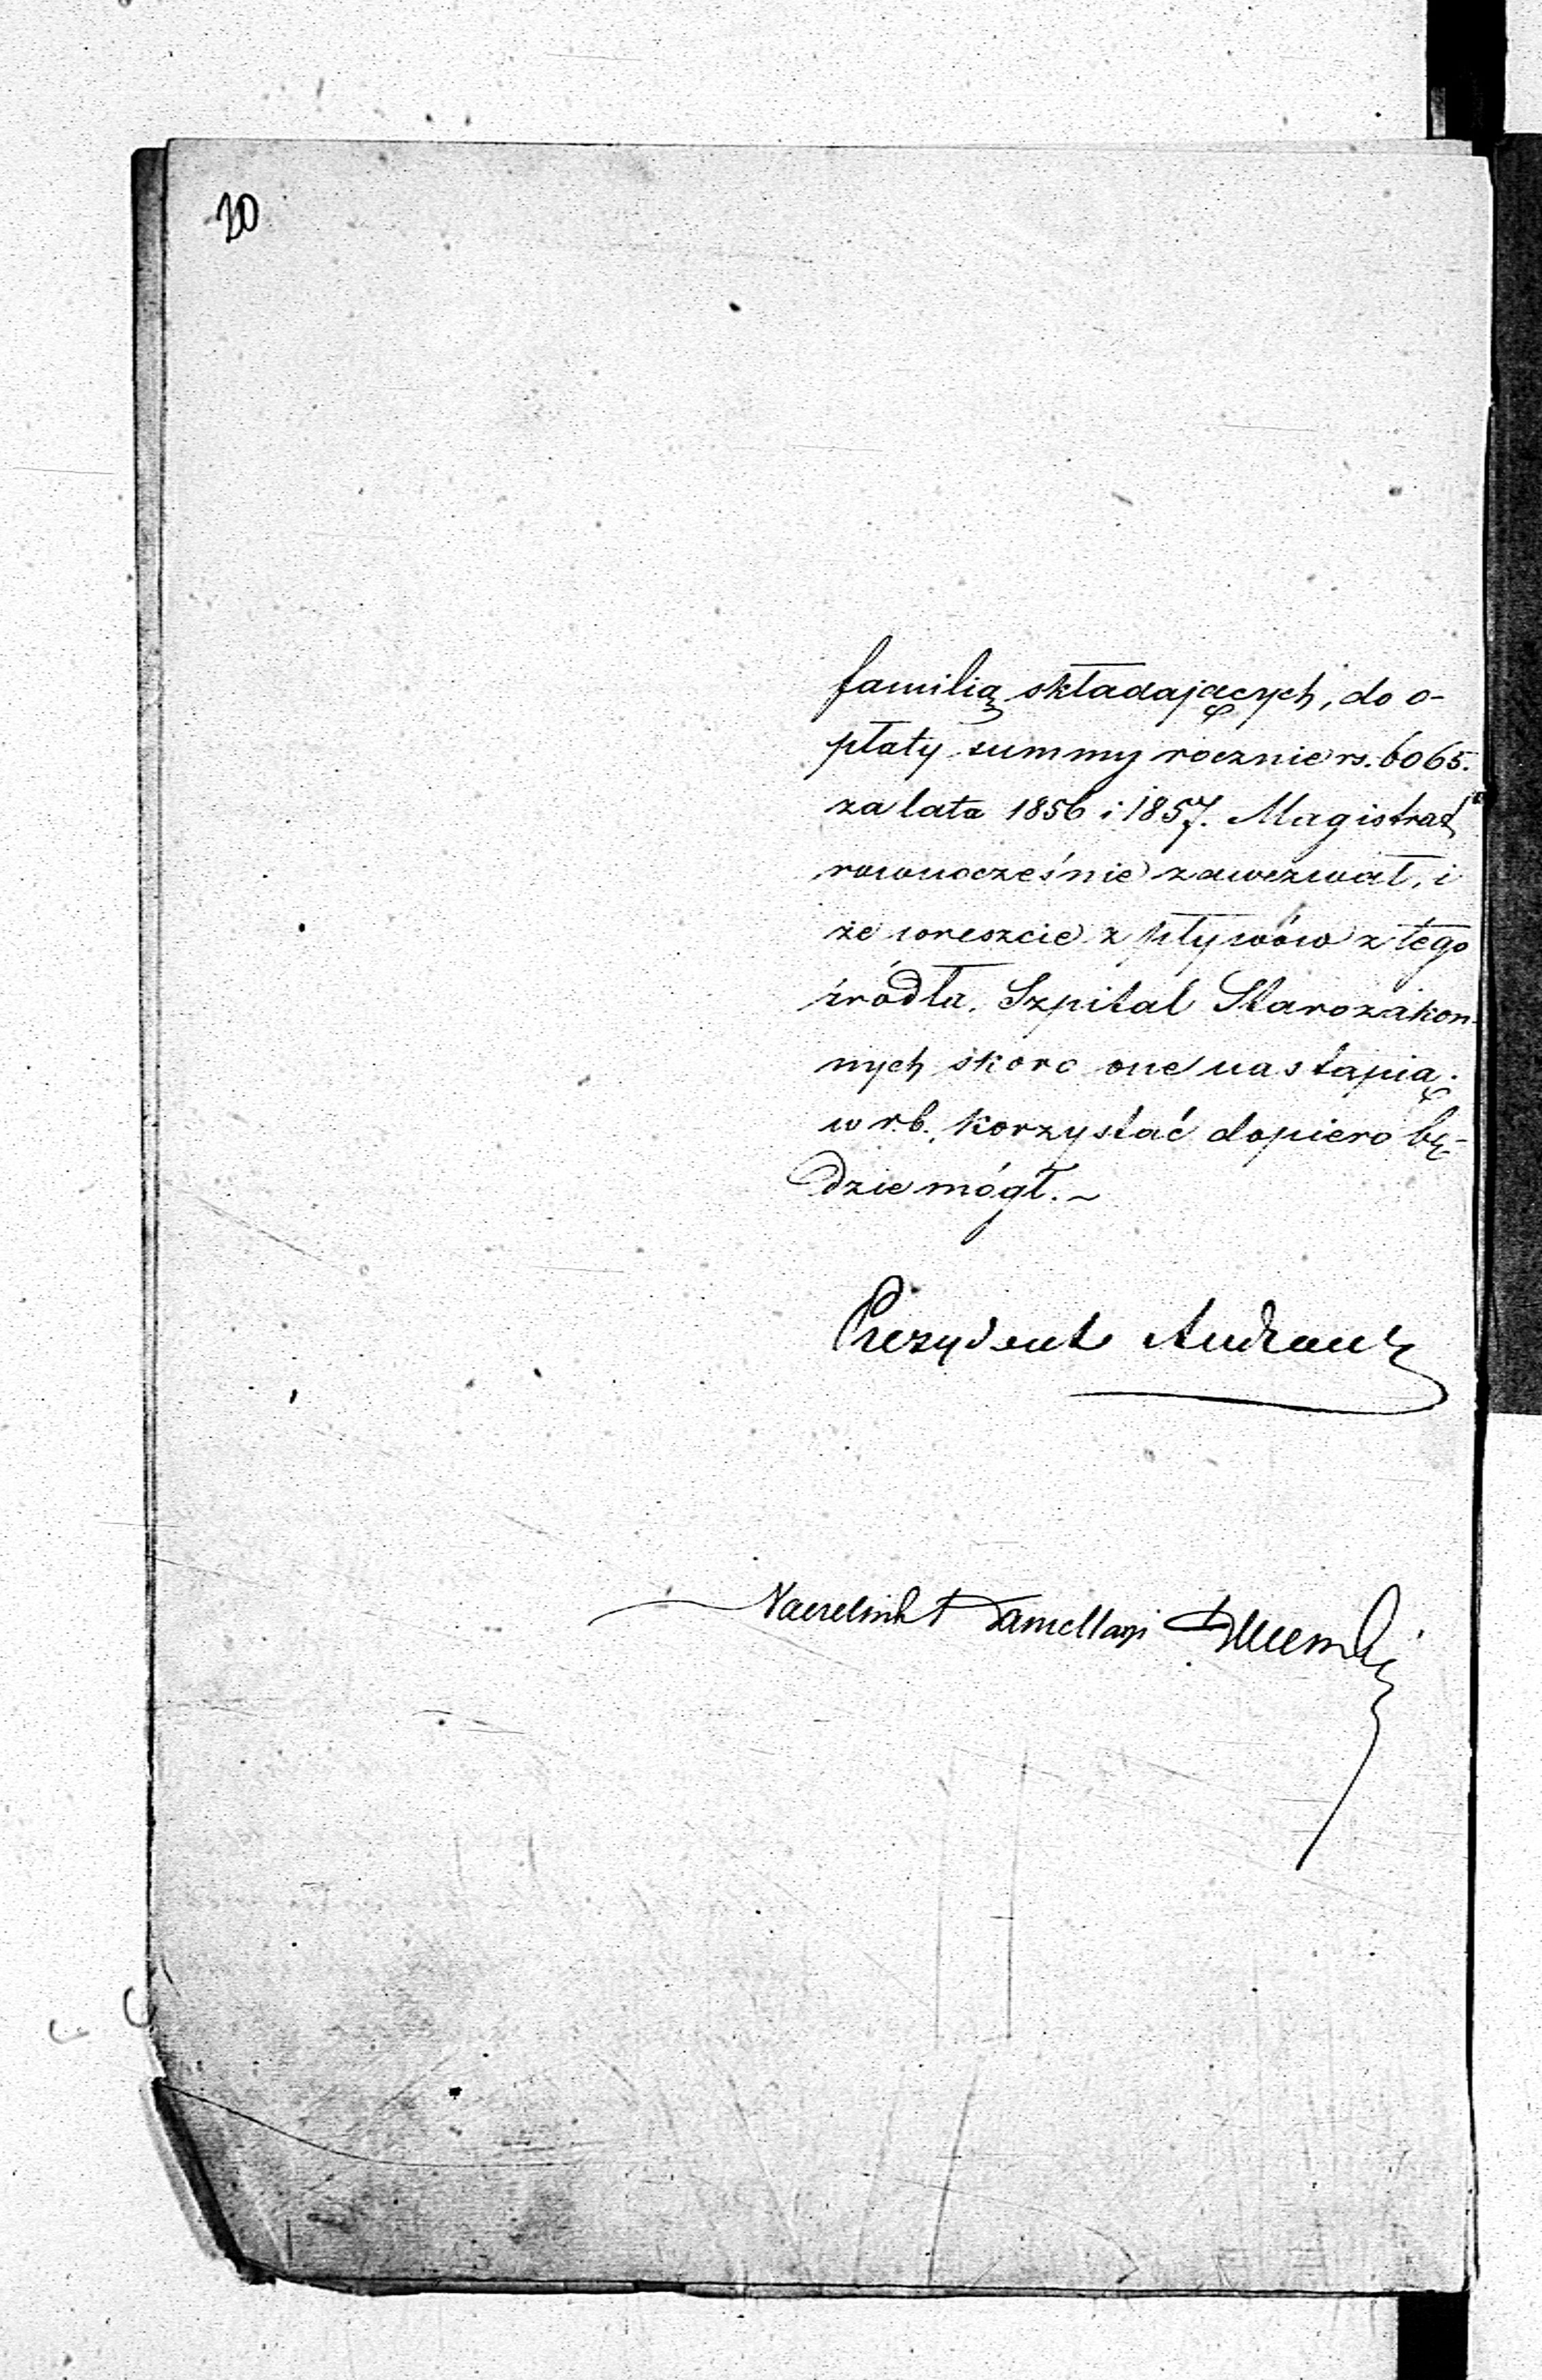 20
familią składających, do o-
płaty summy rocznie rs. 6065.
za lata 1856 i 1857. Magistrat
rownocześnie zawezwał, i
że wreszcie z płynów z tego
źródła, Szpital Starozakon-
nych skoro one nastąpią.
w r.b. korzystać dopiero bę-
dzie mógł. ~
Prezydent Andrault
Naczelnik Kancellaryi